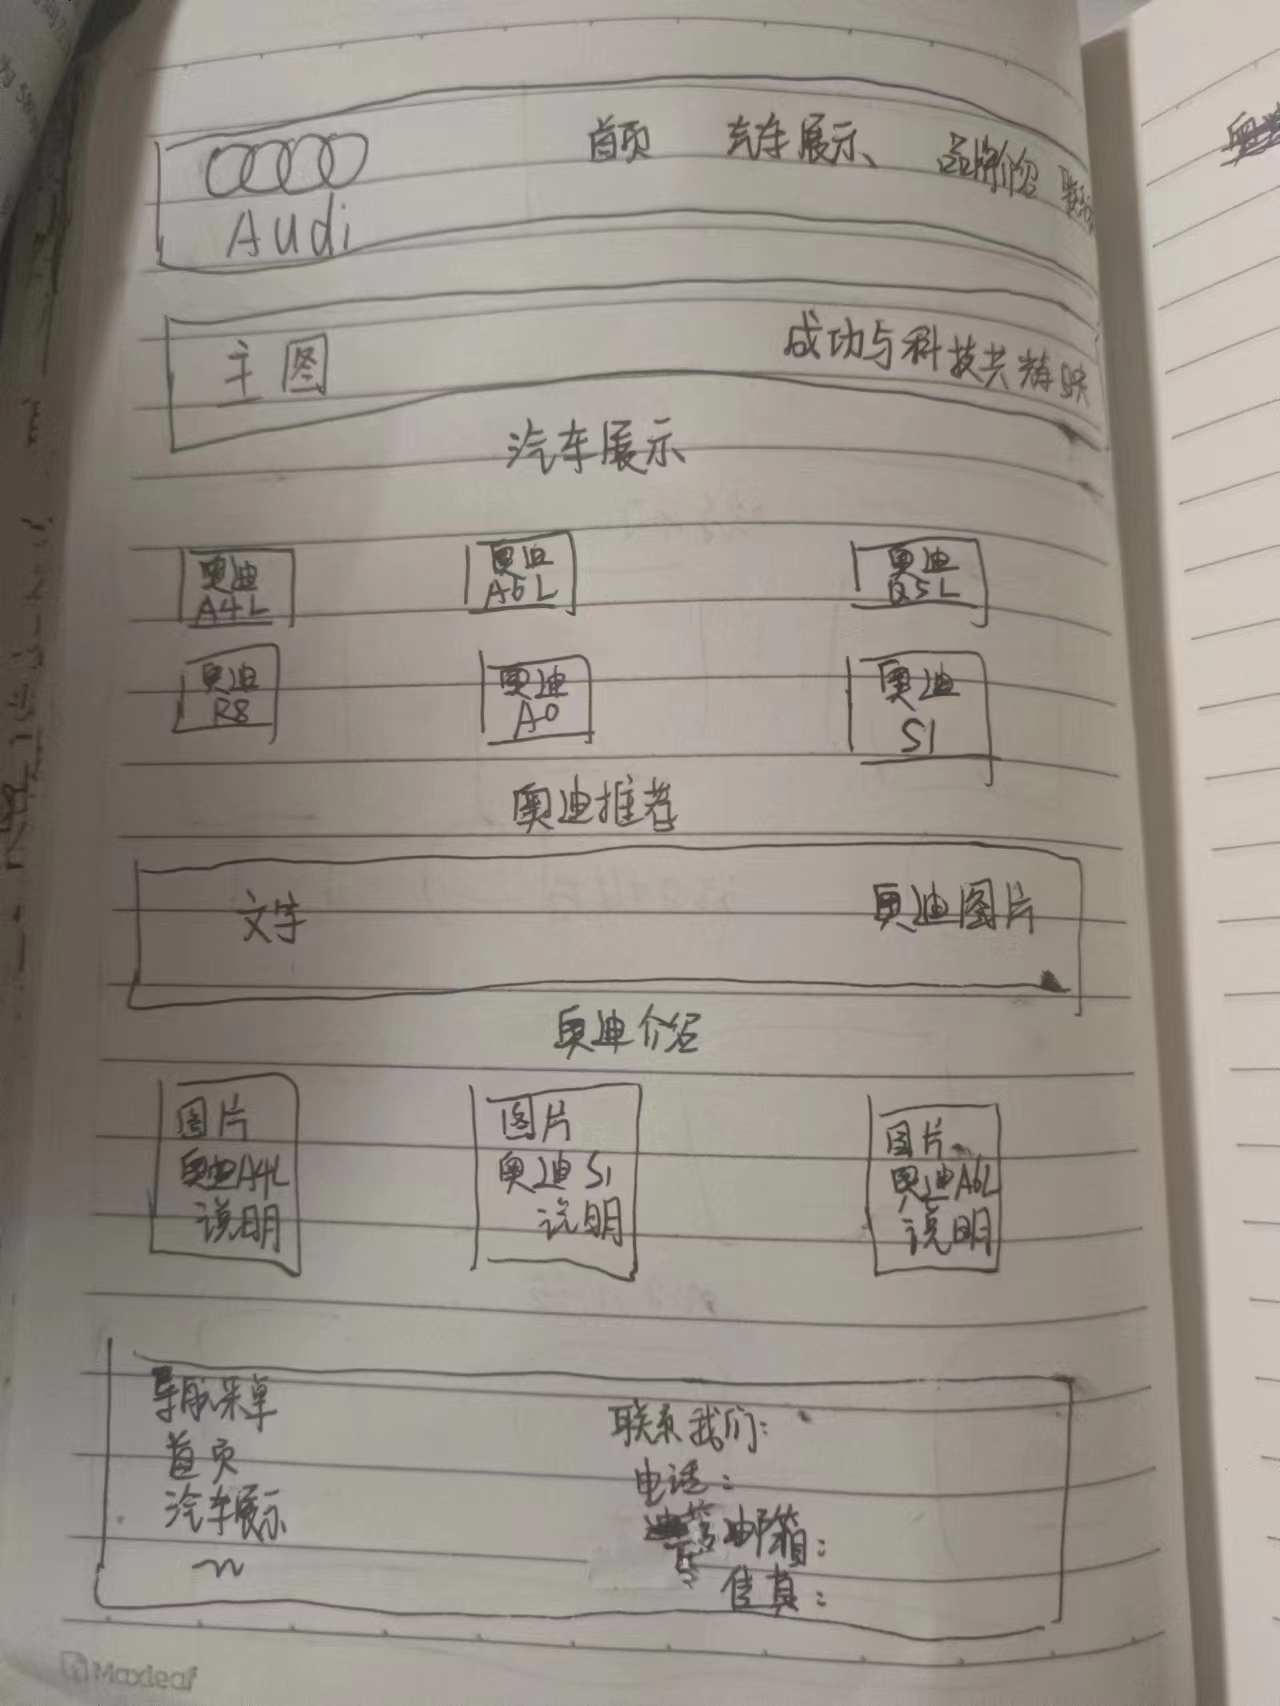 首页 汽车展示 品牌介绍 联系
Audi
主图 成功与科技共辉映
汽车展示
奥迪 A4L
奥迪 A6L
奥迪 Q5L
奥迪 R8
奥迪 A0
奥迪 S1
奥迪推荐
文字 奥迪图片
奥迪介绍
图片
奥迪A4L
说明
图片
奥迪 S1
说明
图片
奥迪A6L
说明
导航菜单
首页
汽车展示
联系我们:
电话:
邮箱:
传真:
Maxleaf